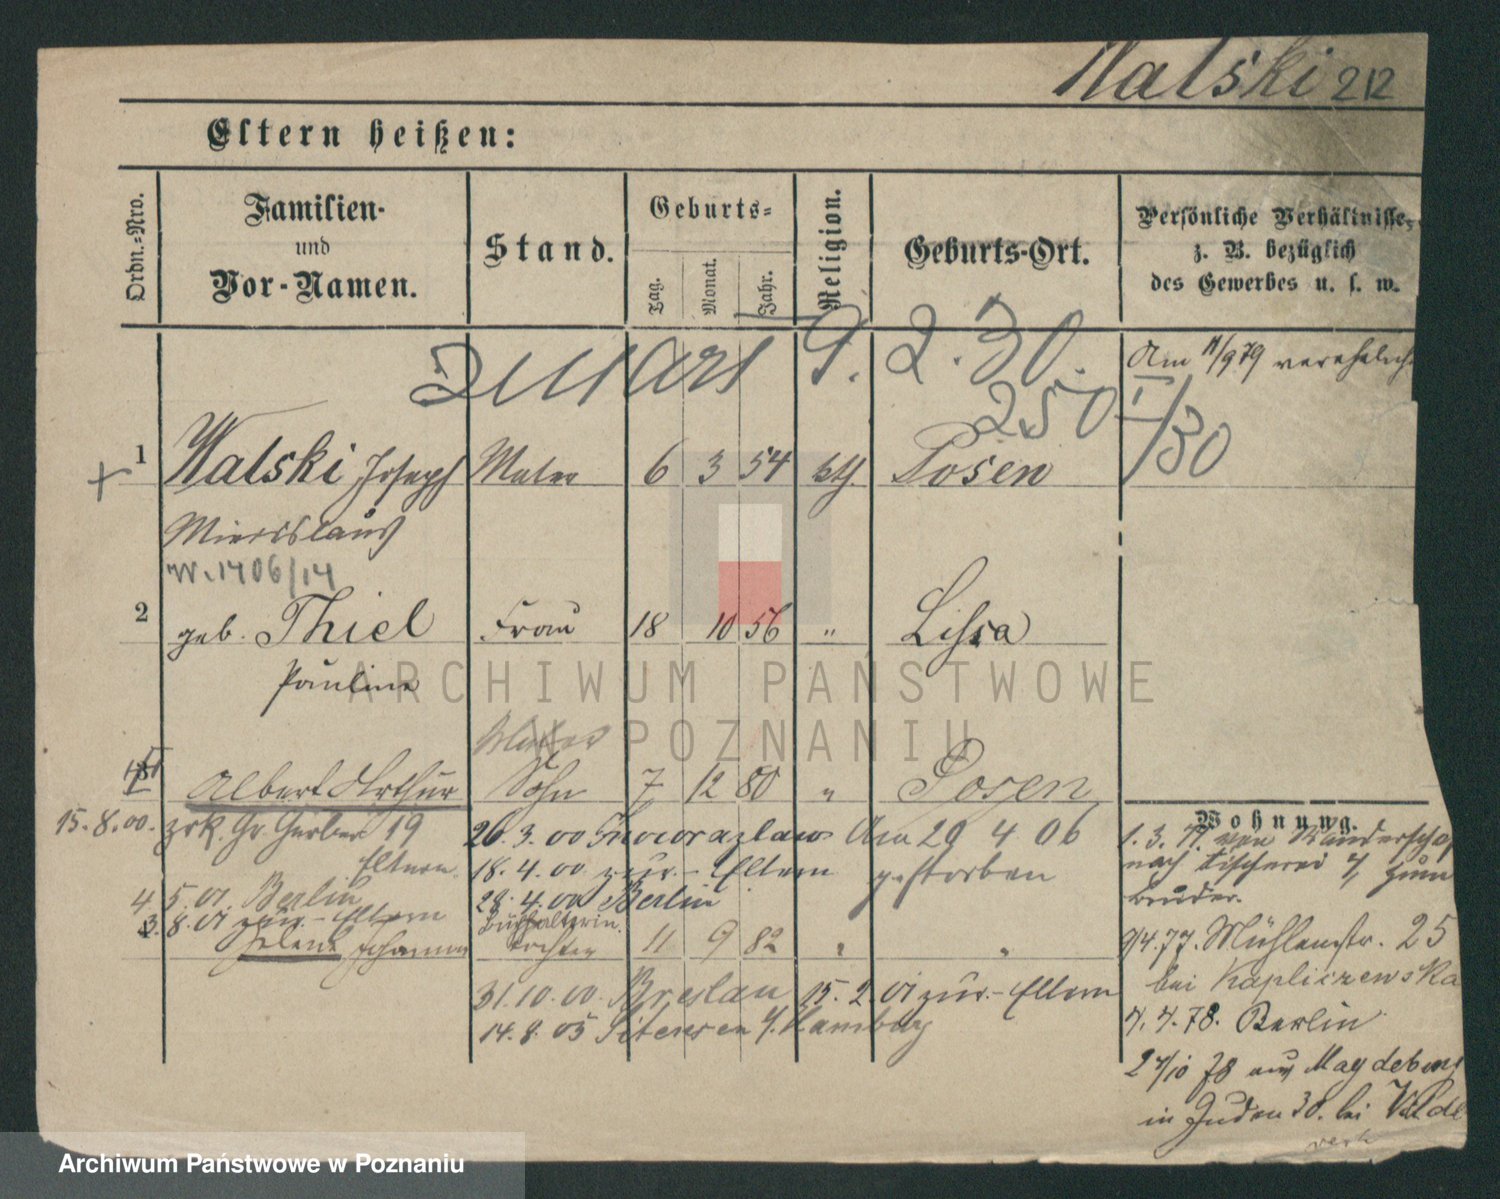 Walski 212
Eltern heißen:
Ordn.-Nro.
Familien-
und
Vor-Namen.
Stand.
Geburts-
Tag.
Monat.
Jahr.
Religion.
Geburts-Ort.
Persönliche Verhältnisse,
z. B. bezüglich
des Gewerbes u. s. w.
2. 30.
250 I/30
Am 11/9 79 verehelicht
1 Walski Joseph Maler 6 3 54 kth Posen
Miecislaus
W. 1406/14
2 geb. Thiel Frau 18 10 56 " Lissa
Pauline
ARCHIWUM PAŃSTWOWE
W POZNANIU
Albert Arthur Sohn 7 12 80 " Posen
Wohnung.
15.8.00. zrk. Gr. Gerber 19
Eltern
4.5.01. Berlin
3.8.01 zur.- Eltern
26.3.00 Inowrazlaw
18.4.00 zur.- Eltern
28.4.00 Berlin
Am 29 4 06
gestorben
Buchhalterin
Helene Johanna Tochter 11 9 82 " "
31.10.00. Breslau 15.2.01 zur.- Eltern
14.8.05 Hamburg
1.3.77. von Wanderschaft
nach Tischerei 4, zum
Bruder.
9/4.77. Mühlenstr. 25
bei Kapliczewska
7.7.78. Berlin
24/10 78 aus Magdeburg
in Juden 30. bei
Archiwum Państwowe w Poznaniu